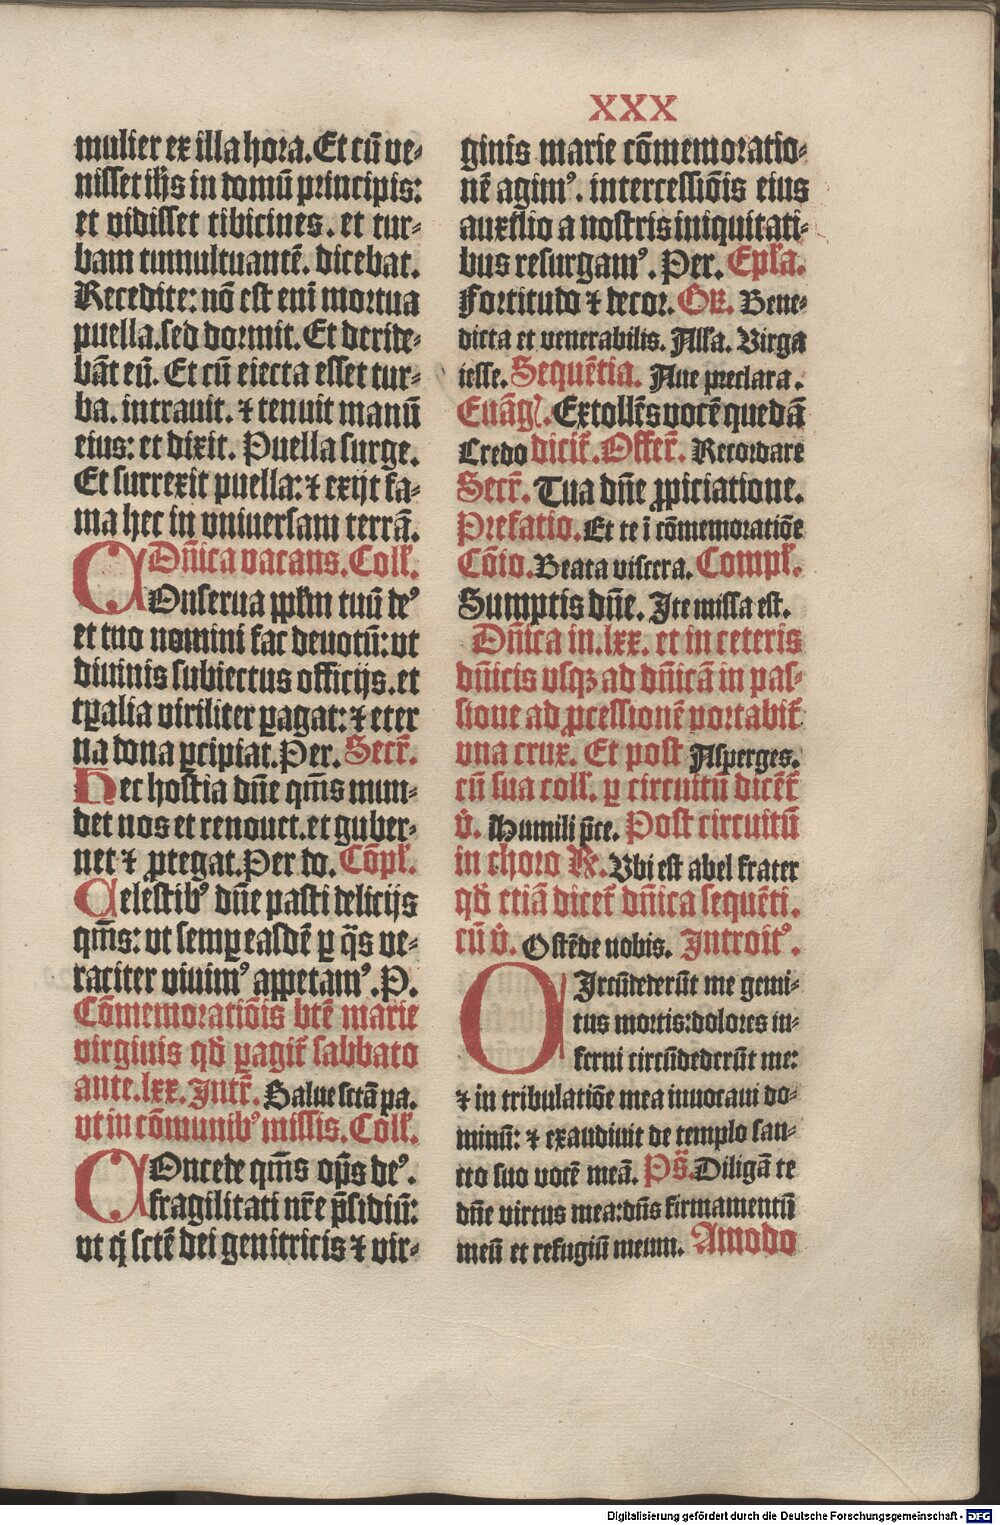 XXX
mulier ex illa hora. Et cū ve⸗
nisset ihs in domū principis:
et vidisset tibicines. et tur⸗
bam tumultuantē. dicebat.
Recedite: nō est enī mortua
puella. sed dormit. Et deride⸗
bāt eū. Et cū eiecta esset tur⸗
ba. intrauit. ⁊ tenuit manū
eius: et dixit. Puella surge.
Et surrexit puella: ⁊ exijt fa⸗
ma hec in vniuersam terrā.
Dn̄ica vacans. Coll̄.
COnserua ppl̄m tuū deꝰ
et tuo nomini fac deuotū: vt
diuinis subiectus officijs. et
tꝑalia viriliter ꝑagat: ⁊ eter
na dona ꝑcipiat. Per. Secr̄.
Hec hostia dn̄e qm̄s mun⸗
det nos et renouet. et guber⸗
net ⁊ ꝓtegat. Per do. Cōpl̄.
Celestibꝰ dn̄e pasti delicijs
qm̄s: vt semꝑ easdē ꝑ q̄s ve⸗
raciter viuimꝰ appetamꝰ. P.
Cōmemoratiōis btē marie
virginis qd̄ ꝑagit̄ sabbato
ante. lxx. Intr̄. Salue sctā pa.
vt in cōmunibꝰ missis. Coll̄.
COncede qm̄s op̄s deꝰ.
fragilitati nr̄e p̄sidiū:
vt q̄ sctē dei genitricis ⁊ vir⸗
ginis marie cōmemoratio⸗
nē agimꝰ. intercessiōis eius
auxilio a nostris iniquitati⸗
bus resurgamꝰ. Per. Epl̄a.
Fortitudo ⁊ decor. Gr̄. Bene⸗
dicta et venerabilis. All̄a. Virga
iesse. Sequētia. Aue preclara.
Euāgl̄. Extollēs vocē quedā
Credo dicit̄. Offer̄. Recordare
Secr̄. Tua dn̄e ꝓpiciatione.
Prefatio. Et te ī cōmemoratiōe
Cōio. Beata viscera. Compl̄.
Sumptis dn̄e. Ite missa est.
Dn̄ica in. lxx. et in ceteris
dn̄icis vsqꝫ ad dn̄icā in pas⸗
sione ad ꝓcessionē portabit̄
vna crux. Et post Asperges.
cū sua coll̄. ꝑ circuitū dicēt̄
v̄. Humili p̄ce. Post circuitū
in choro ℞. Vbi est abel frater
qd̄ etiā dicet̄ dn̄ica sequēti.
cū v̄. Ostēde nobis. Introitꝰ.
CIrcūdederūt me gemi⸗
tus mortis: dolores in⸗
ferni circūdederūt me:
⁊ in tribulatiōe mea inuocaui do⸗
minū: ⁊ exaudiuit de templo san⸗
cto suo vocē meā. Ps̄. Diligā te
dn̄e virtus mea: dn̄s firmamentū
meū et refugiū meum. Amodo
Digitalisierung gefördert durch die Deutsche Forschungsgemeinschaft - DFG